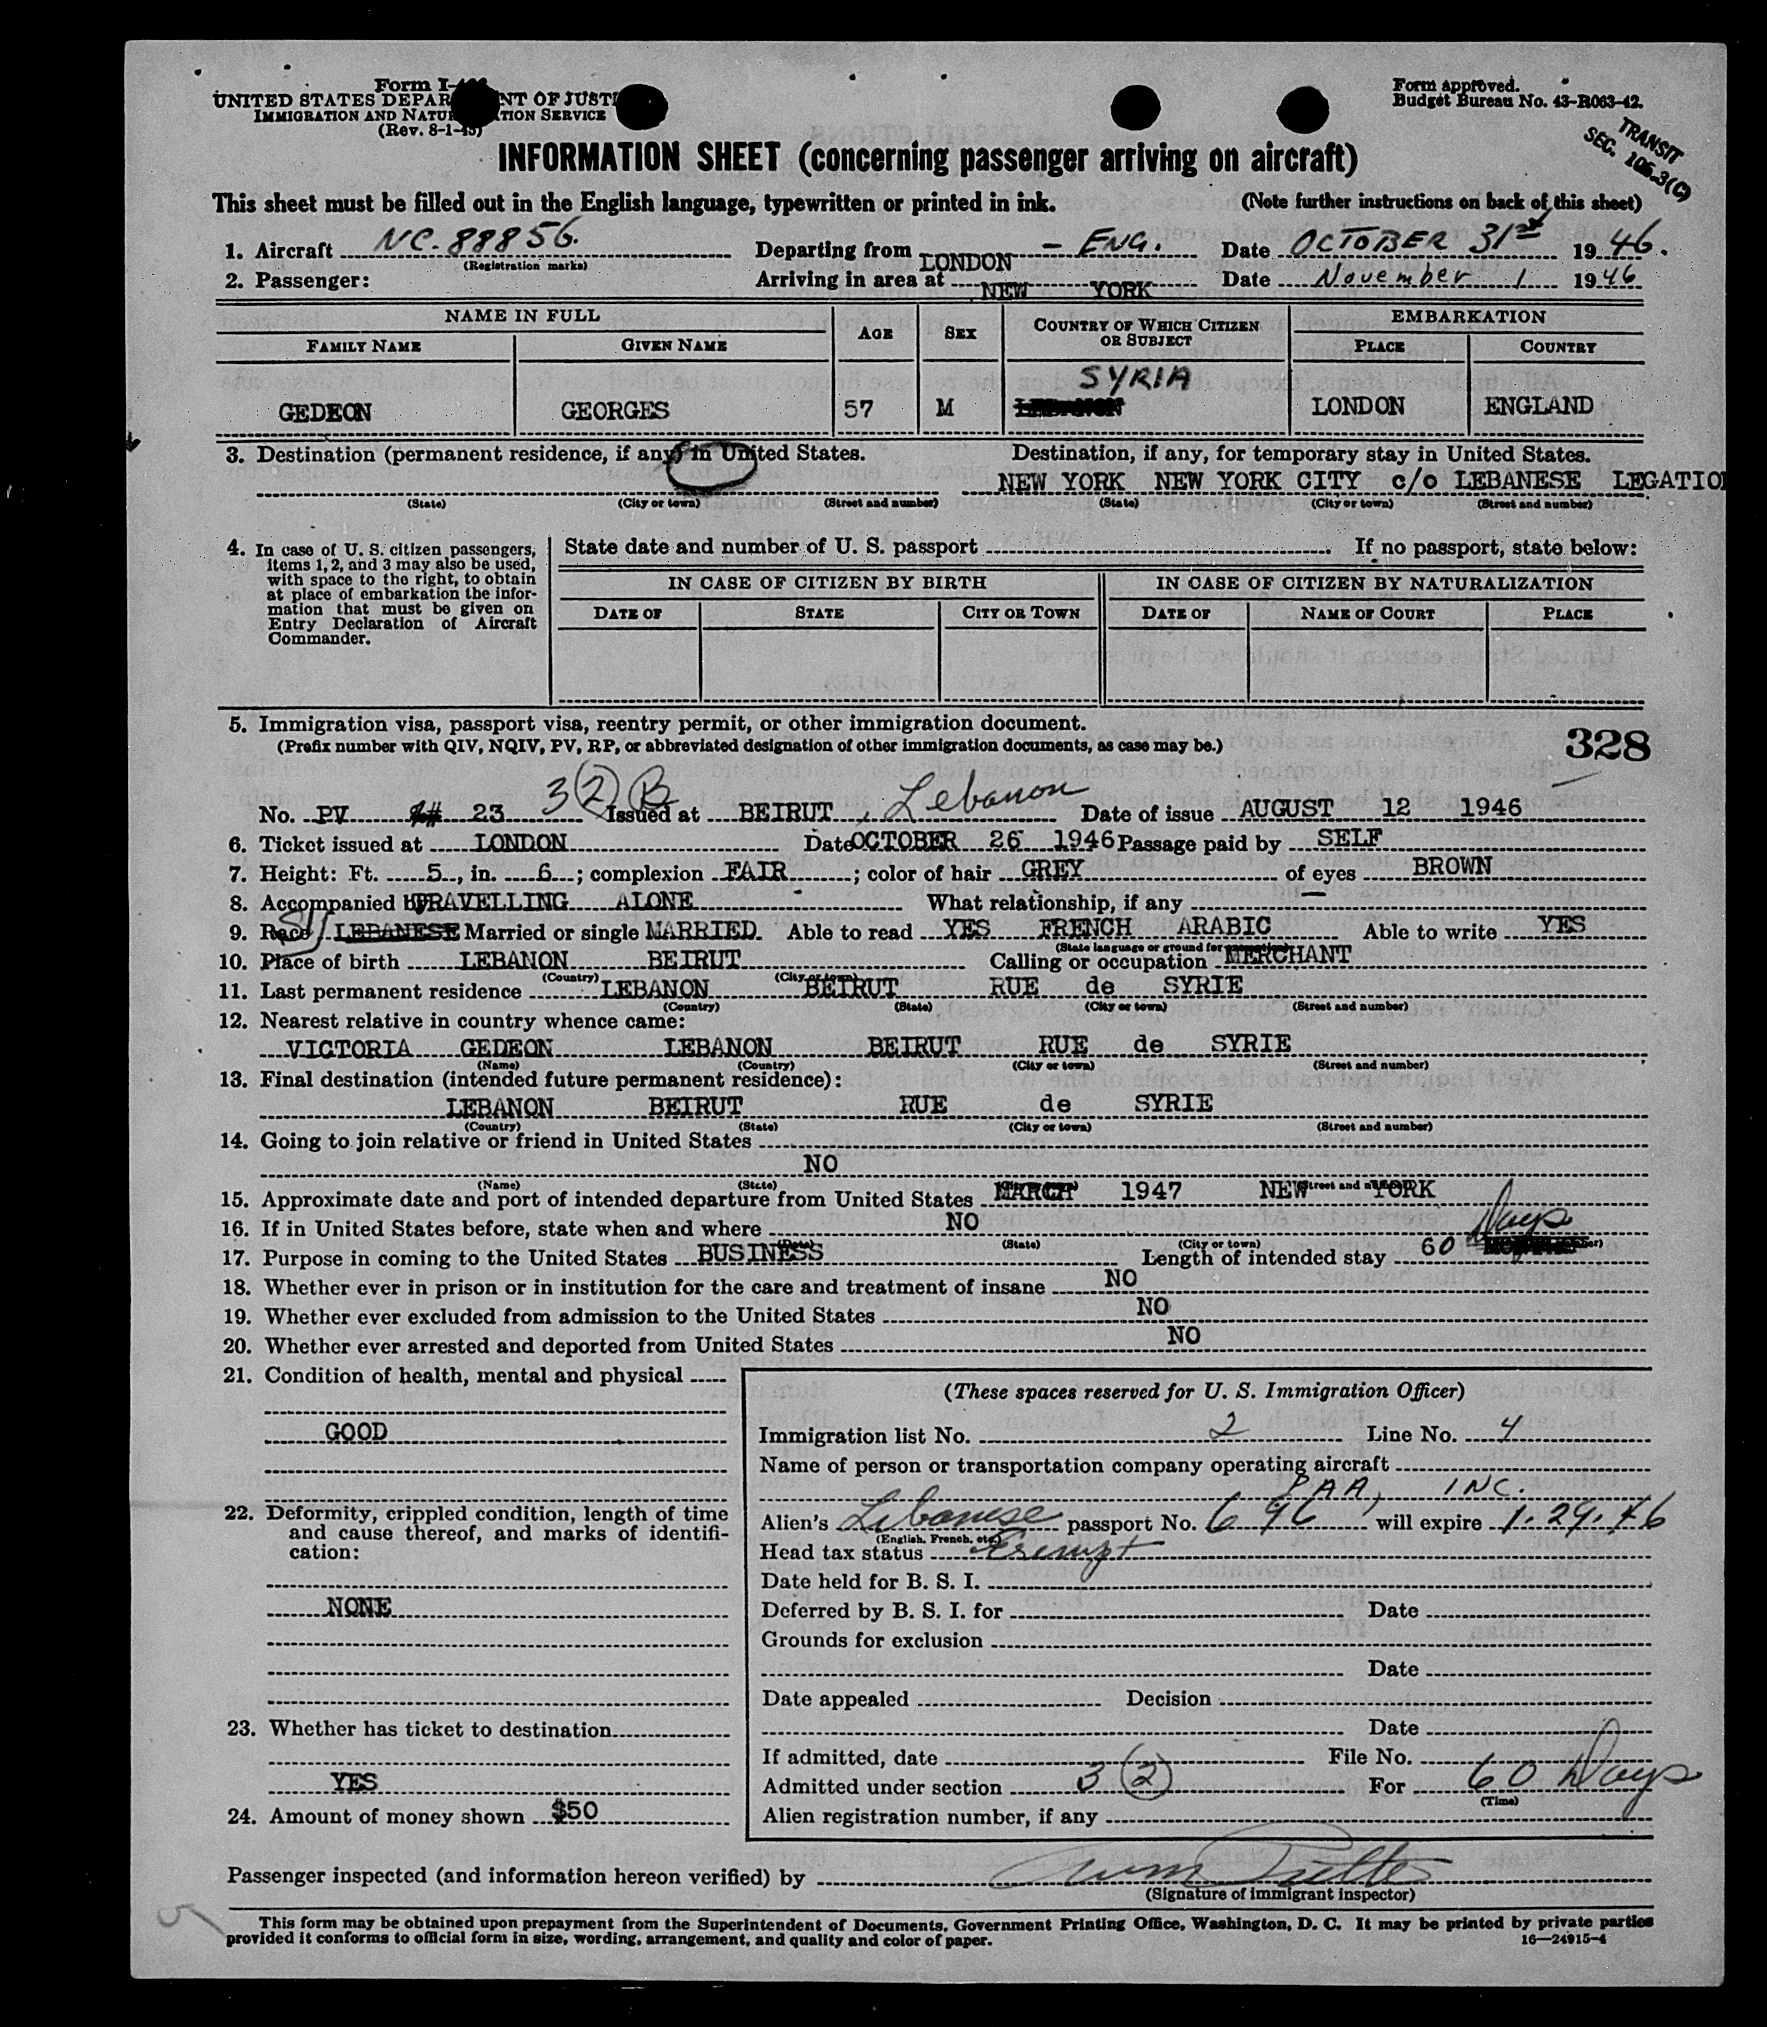 Form I-466
UNITED STATES DEPARTMENT OF JUSTICE
IMMIGRATION AND NATURALIZATION SERVICE
(Rev. 8-1-45)
Form approved.
Budget Bureau No. 43-R063-42.
TRANSIT
SEC. 106.3(C)
INFORMATION SHEET (concerning passenger arriving on aircraft)
This sheet must be filled out in the English language, typewritten or printed in ink. (Note further instructions on back of this sheet)
1. Aircraft NC. 88856. (Registration marks) Departing from LONDON - ENG. Date OCTOBER 31st 1946.
2. Passenger: Arriving in area at NEW YORK Date November 1 1946
NAME IN FULL AGE SEX COUNTRY OF WHICH CITIZEN OR SUBJECT EMBARKATION
FAMILY NAME GIVEN NAME PLACE COUNTRY
SYRIA
GEDEON GEORGES 57 M LEBANON LONDON ENGLAND
3. Destination (permanent residence, if any) in United States. Destination, if any, for temporary stay in United States.
NEW YORK NEW YORK CITY c/o LEBANESE LEGATIO
(State) (City or town) (Street and number) (State) (City or town) (Street and number)
4. In case of U. S. citizen passengers, items 1, 2, and 3 may also be used, with space to the right, to obtain at place of embarkation the information that must be given on Entry Declaration of Aircraft Commander.
State date and number of U. S. passport If no passport, state below:
IN CASE OF CITIZEN BY BIRTH IN CASE OF CITIZEN BY NATURALIZATION
DATE OF STATE CITY OR TOWN DATE OF NAME OF COURT PLACE
5. Immigration visa, passport visa, reentry permit, or other immigration document.
(Prefix number with QIV, NQIV, PV, RP, or abbreviated designation of other immigration documents, as case may be.) 328
3(2) B
No. PV 23 Issued at BEIRUT, Lebanon Date of issue AUGUST 12 1946
6. Ticket issued at LONDON Date OCTOBER 26 1946 Passage paid by SELF
7. Height: Ft. 5, in. 6; complexion FAIR; color of hair GREY of eyes BROWN
8. Accompanied by TRAVELLING ALONE - What relationship, if any —
9. Race LEBANESE Married or single MARRIED. Able to read YES FRENCH ARABIC Able to write YES
(State language or ground for exemption)
10. Place of birth LEBANON BEIRUT Calling or occupation MERCHANT
(Country) (City or town)
11. Last permanent residence LEBANON BEIRUT RUE de SYRIE
(Country) (State) (City or town) (Street and number)
12. Nearest relative in country whence came:
VICTORIA GEDEON LEBANON BEIRUT RUE de SYRIE
(Name) (Country) (City or town) (Street and number)
13. Final destination (intended future permanent residence):
LEBANON BEIRUT RUE de SYRIE
(Country) (State) (City or town) (Street and number)
14. Going to join relative or friend in United States
NO
(Name) (State) (Street and number)
15. Approximate date and port of intended departure from United States MARCH 1947 NEW YORK
16. If in United States before, state when and where NO
(Date) (State) (City or town)
17. Purpose in coming to the United States BUSINESS Length of intended stay 60 Days
18. Whether ever in prison or in institution for the care and treatment of insane NO
19. Whether ever excluded from admission to the United States NO
20. Whether ever arrested and deported from United States NO
21. Condition of health, mental and physical
GOOD
22. Deformity, crippled condition, length of time and cause thereof, and marks of identification:
NONE
23. Whether has ticket to destination
YES
24. Amount of money shown $50
(These spaces reserved for U. S. Immigration Officer)
Immigration list No. 2 Line No. 4
Name of person or transportation company operating aircraft
PAA, INC.
Alien's Lebanese passport No. 696 will expire 1.29.46
(English, French, etc.)
Head tax status Exempt
Date held for B. S. I.
Deferred by B. S. I. for Date
Grounds for exclusion
Date
Date appealed Decision
Date
If admitted, date File No.
Admitted under section 3(2) For 60 Days
(Time)
Alien registration number, if any
Passenger inspected (and information hereon verified) by
(Signature of immigrant inspector)
This form may be obtained upon prepayment from the Superintendent of Documents, Government Printing Office, Washington, D. C. It may be printed by private parties
provided it conforms to official form in size, wording, arrangement, and quality and color of paper. 16—24915-4